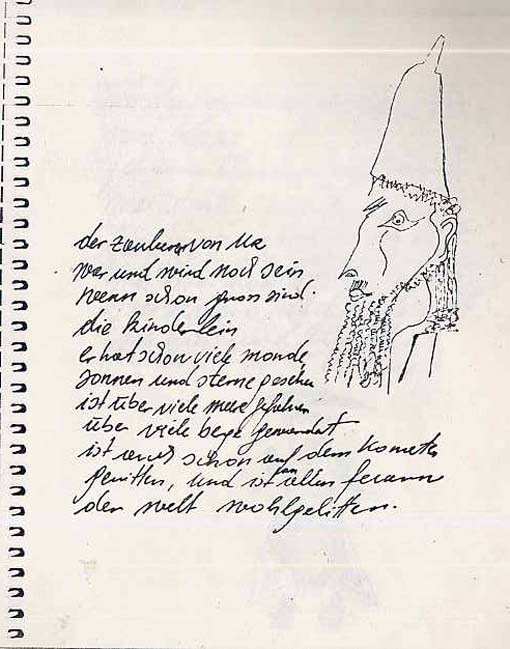 der zauberer von Ur
war und wird noch sein
wenn schon gross sind.
die kinderlein
er hat schon viele monde
sonnen und sterne gesehen
ist über viele meere gefahren
über viele berge gewandert
ist auch schon auf dem kometen
geritten, und ist an allen
der welt wohlgelitten.